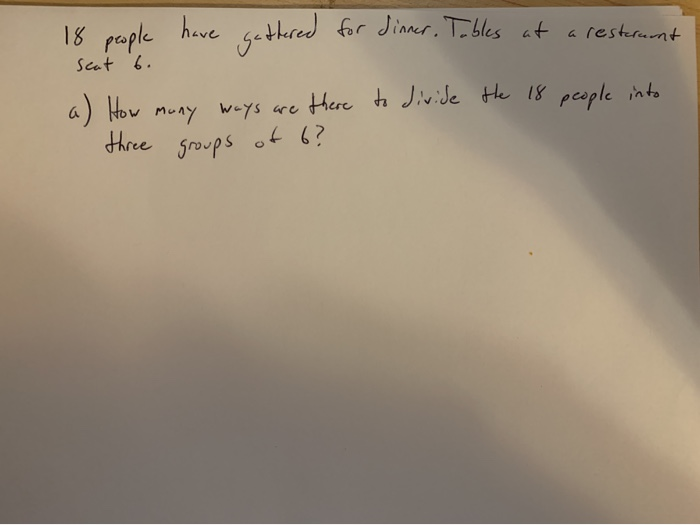 18 people have gathered for dinner. Tables at a resteraunt
seat 6.
a) How many ways are there to divide the 18 people into
three groups of 6?